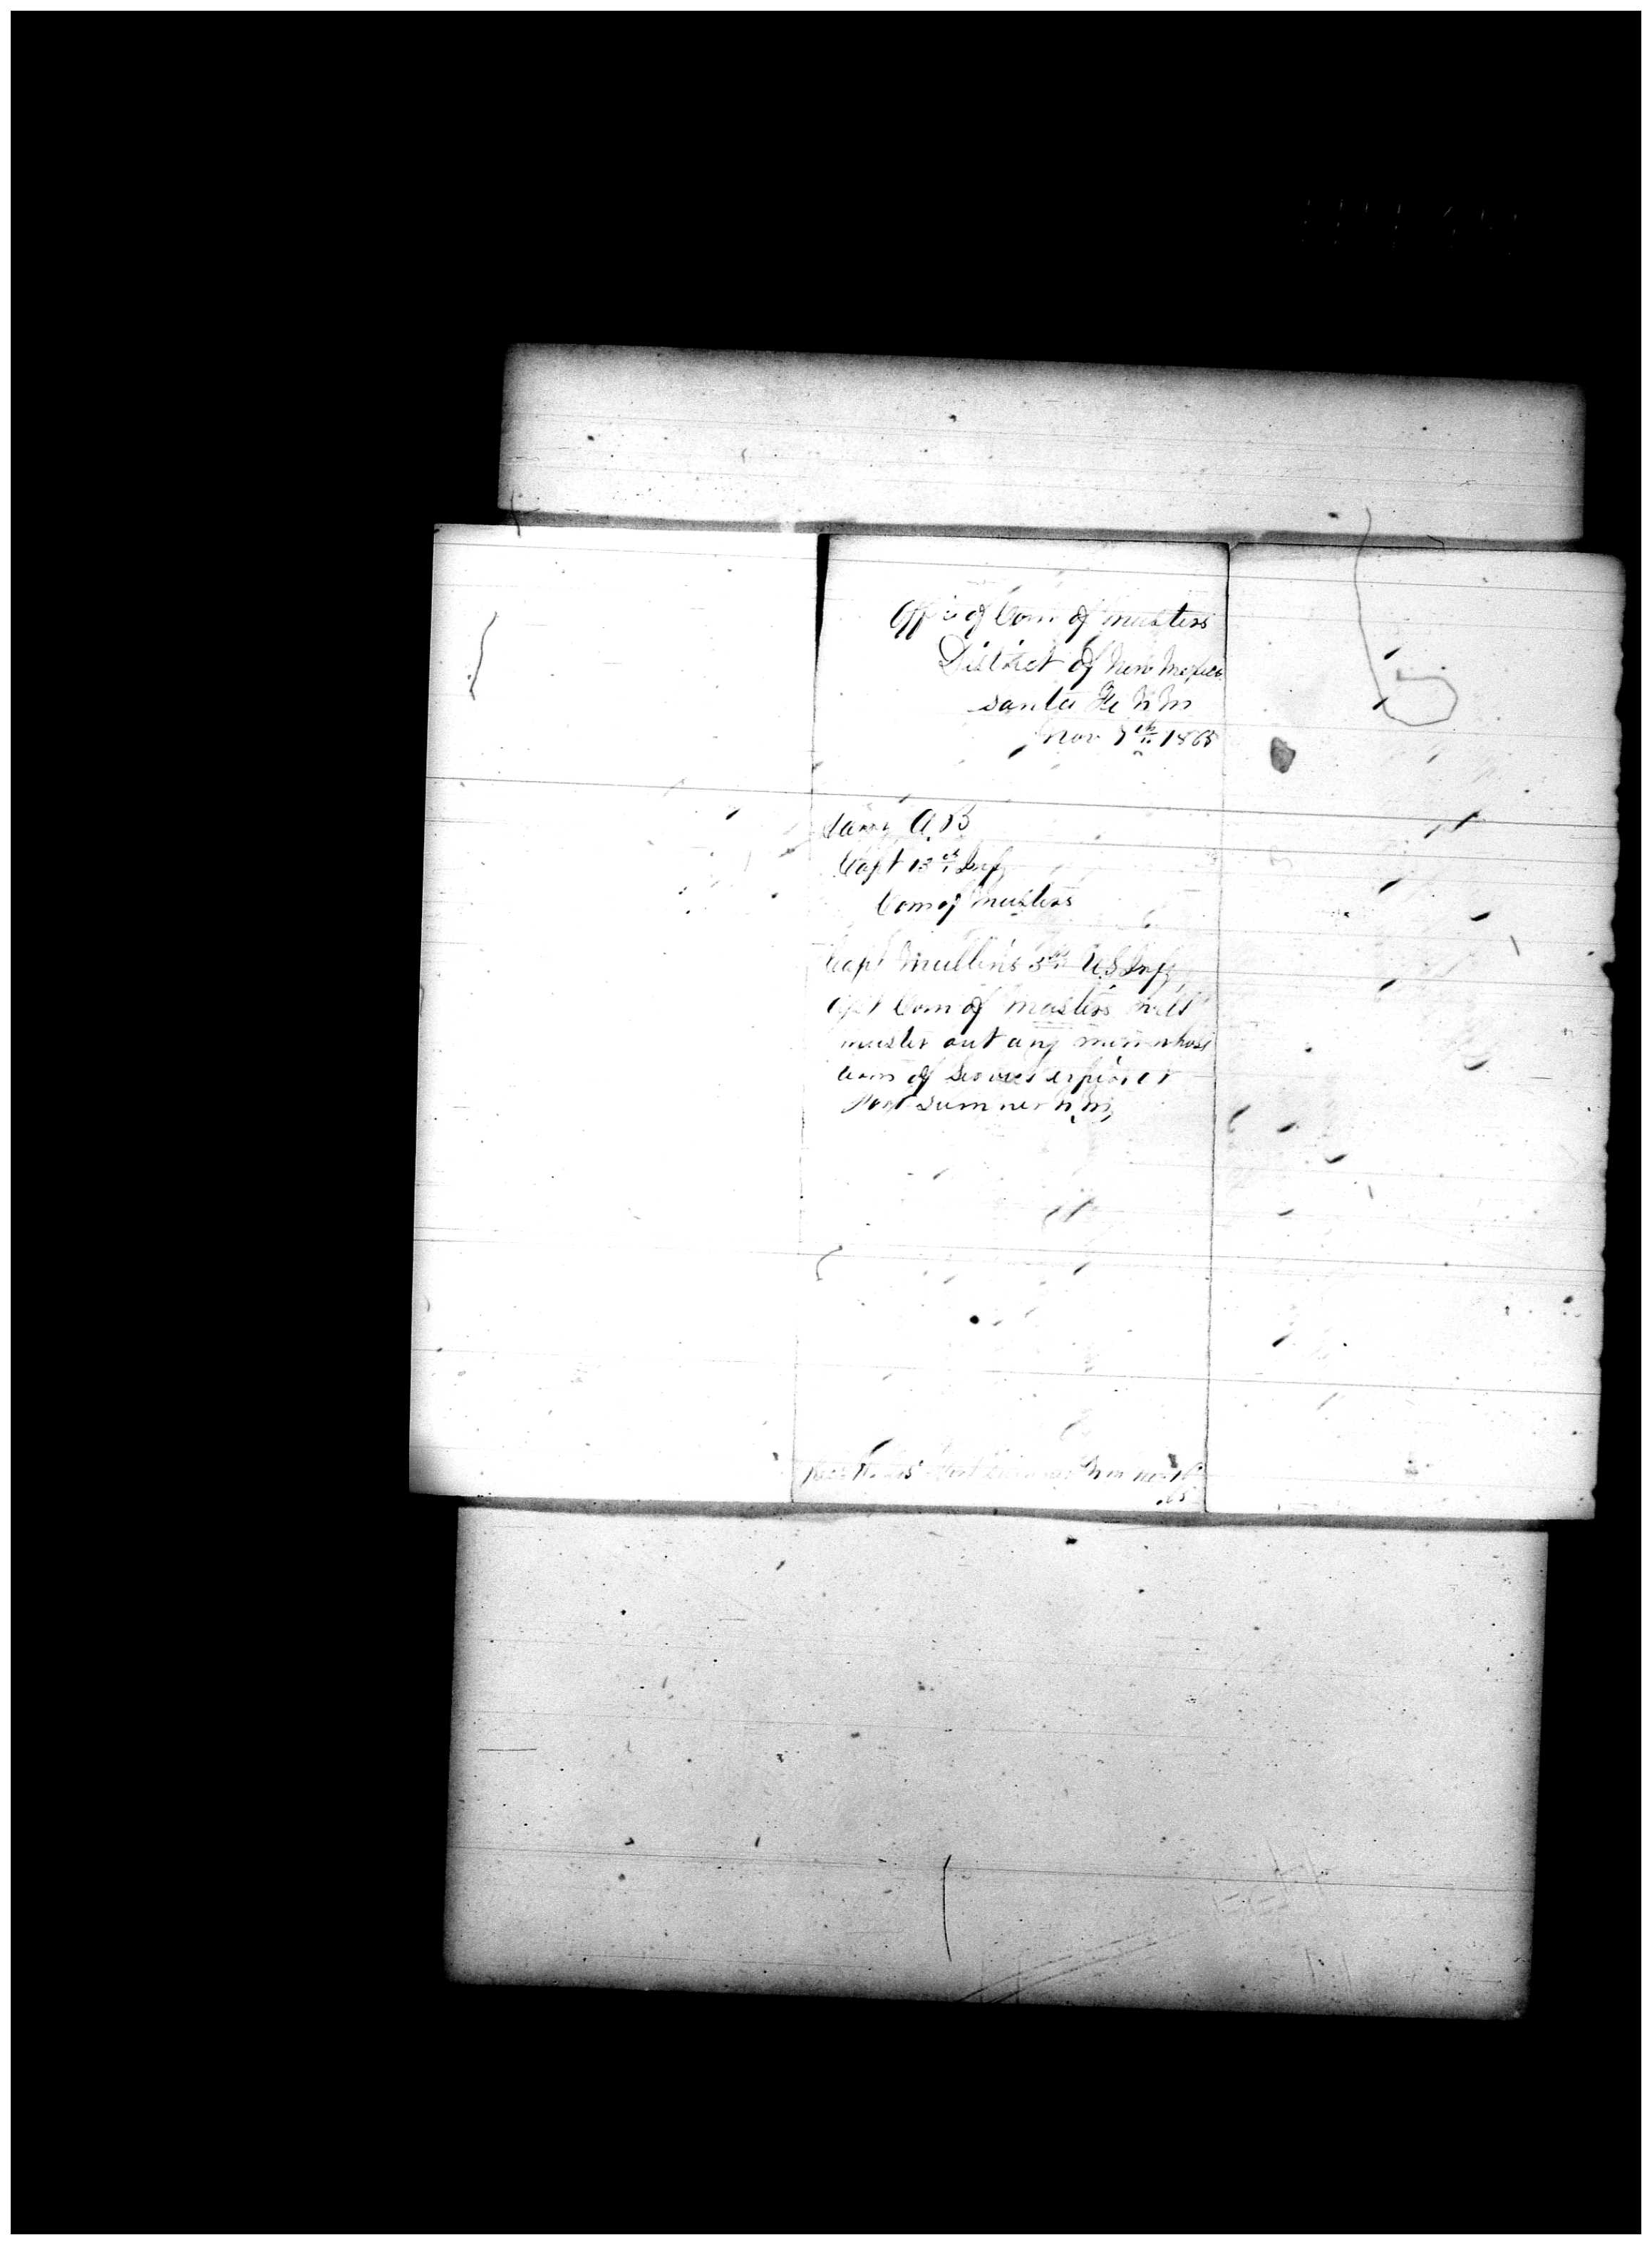 Office of Com of musters
District of New Mexico
Santa Fe N M
Nov 7th 1865
A. B
Capt 13th Inf
Com of Musters
Capt Mullins 5th U.S. Inf
Asst Com of Musters will
muster out any men whose
term of Service expires at
Fort Sumner N. M.
Fort Sumner N M Nov
65